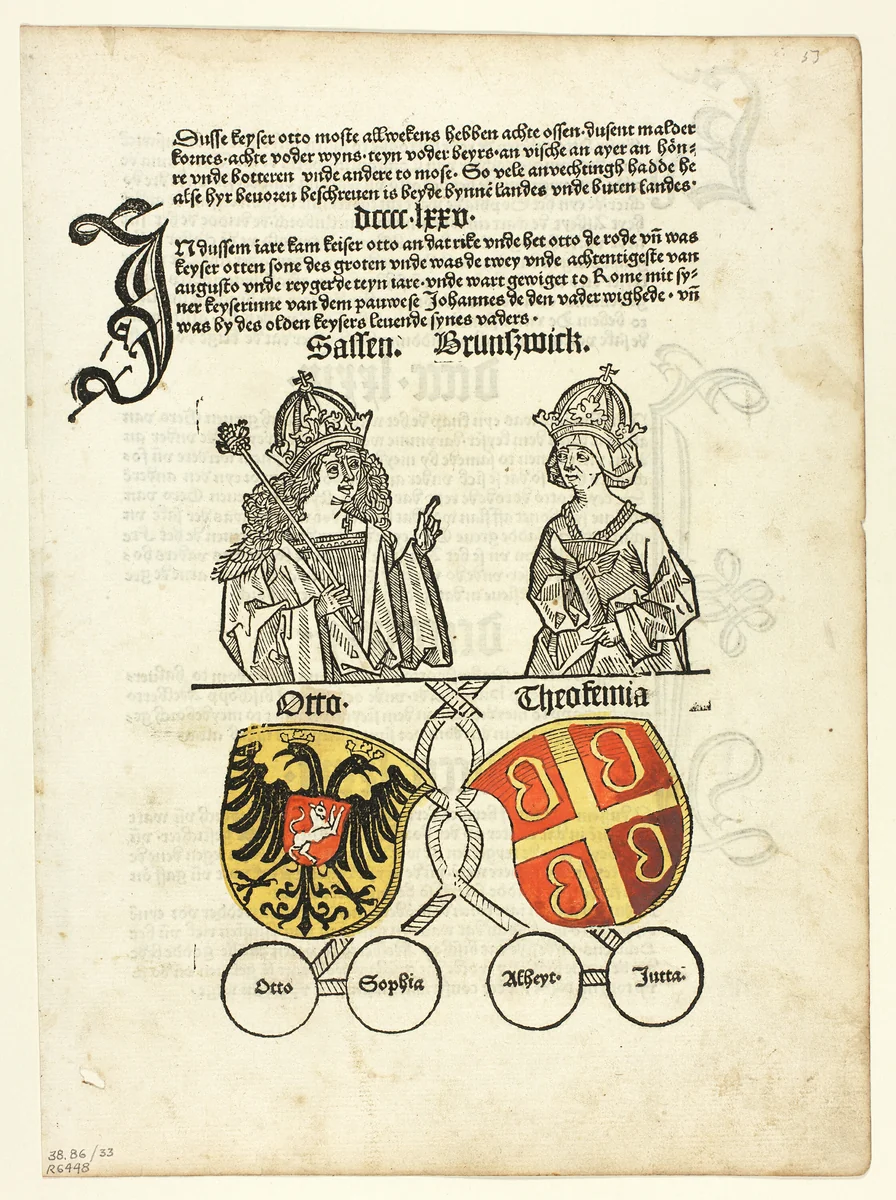 53
Dusse keyser otto moste allwekens hebben achte ossen·dusent malder
kornes·achte voder wyns·teyn voder beyrs·an vische an ayer an hön⸗
re vnde botteren vnde andere to mose· So vele anvechtingh hadde he
alse hyr beuoren beschreuen is beyde bynnē landes vnde buten landes·
dcccc·lxxv·
INdussem iare kam keiser otto an dat rike vnde het otto de rode vn̄ was
keyser otten sone des groten vnde was de twey vnde achtentigeste van
augusto vnde reygerde teyn iare·vnde wart gewiget to Rome mit sy⸗
ner keyserinne van dem pauwese Johannes de den vader wighede· vn̄
was by des olden keysers leuende synes vaders·
Sassen. Brunszwick.
Otto· Theofemia
Otto Sophia Alheyt· Jutta·
38.86/33
R6448